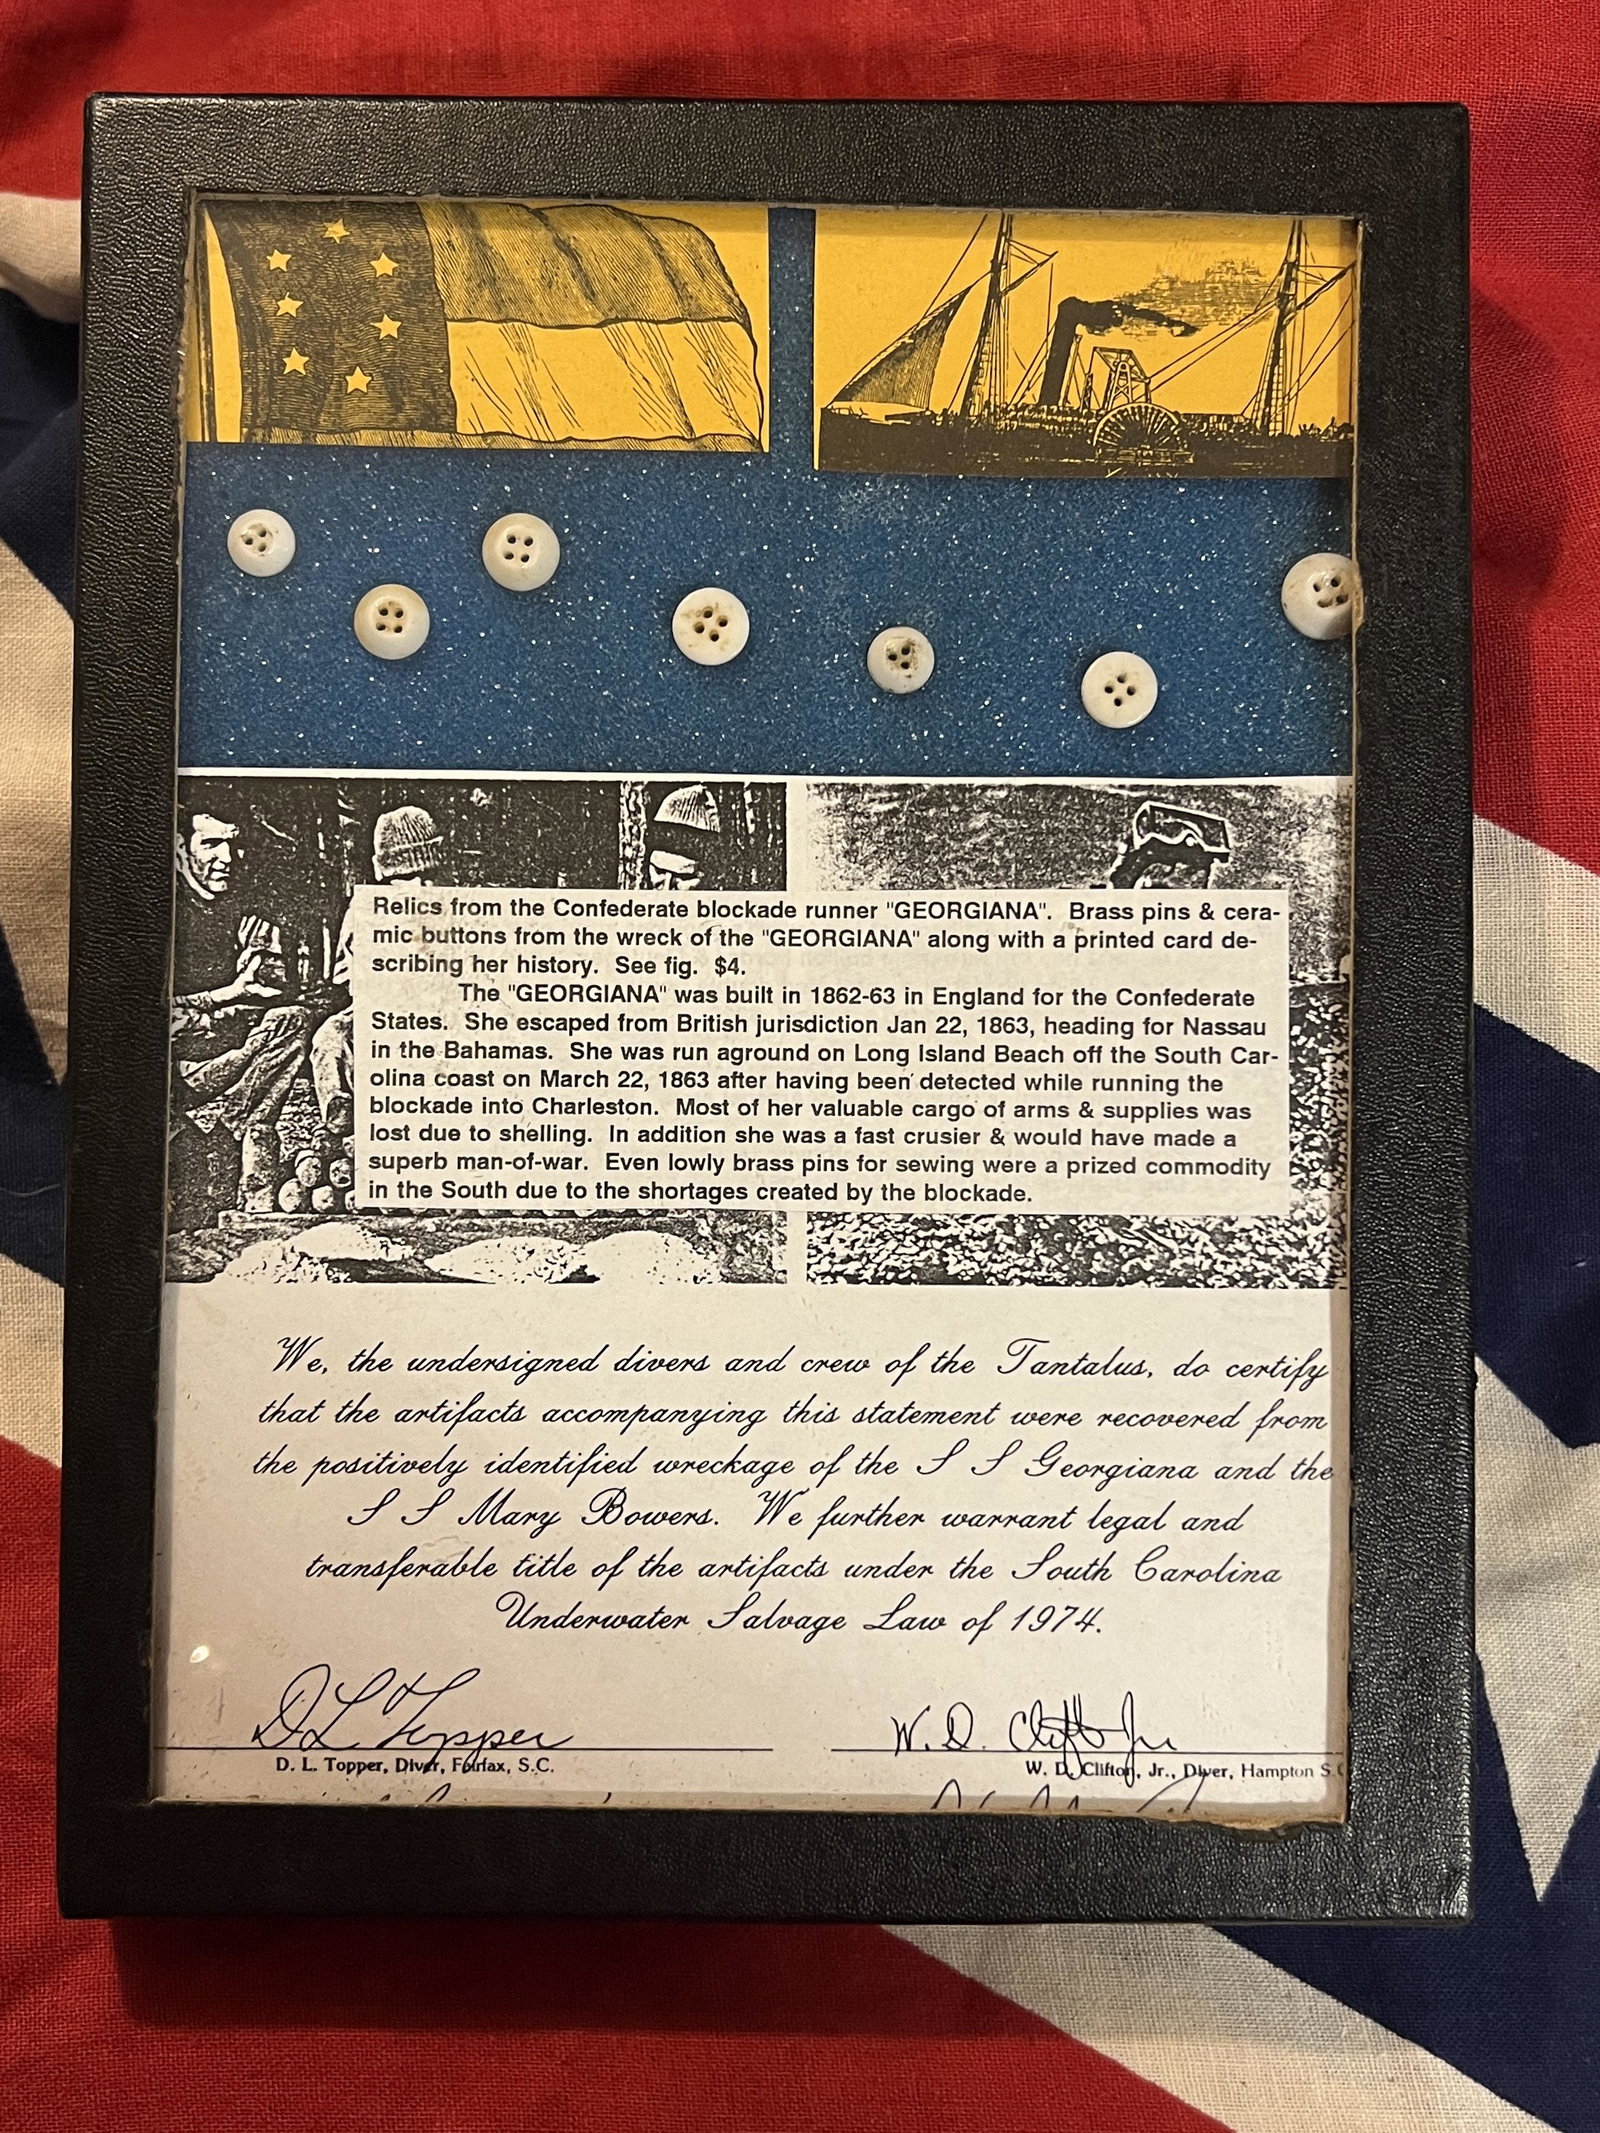 Relics from the Confederate blockade runner "GEORGIANA". Brass pins & cera-
mic buttons from the wreck of the "GEORGIANA" along with a printed card de-
scribing her history. See fig. $4.
The "GEORGIANA" was built in 1862-63 in England for the Confederate
States. She escaped from British jurisdiction Jan 22, 1863, heading for Nassau
in the Bahamas. She was run aground on Long Island Beach off the South Car-
olina coast on March 22, 1863 after having been detected while running the
blockade into Charleston. Most of her valuable cargo of arms & supplies was
lost due to shelling. In addition she was a fast crusier & would have made a
superb man-of-war. Even lowly brass pins for sewing were a prized commodity
in the South due to the shortages created by the blockade.
We, the undersigned divers and crew of the Tantalus, do certify
that the artifacts accompanying this statement were recovered from
the positively identified wreckage of the S S Georgiana and the
S S Mary Bowers. We further warrant legal and
transferable title of the artifacts under the South Carolina
Underwater Salvage Law of 1974.
D L Topper W. D. Clifton Jr
D. L. Topper, Diver, Fairfax, S.C. W. D. Clifton, Jr., Diver, Hampton S.C